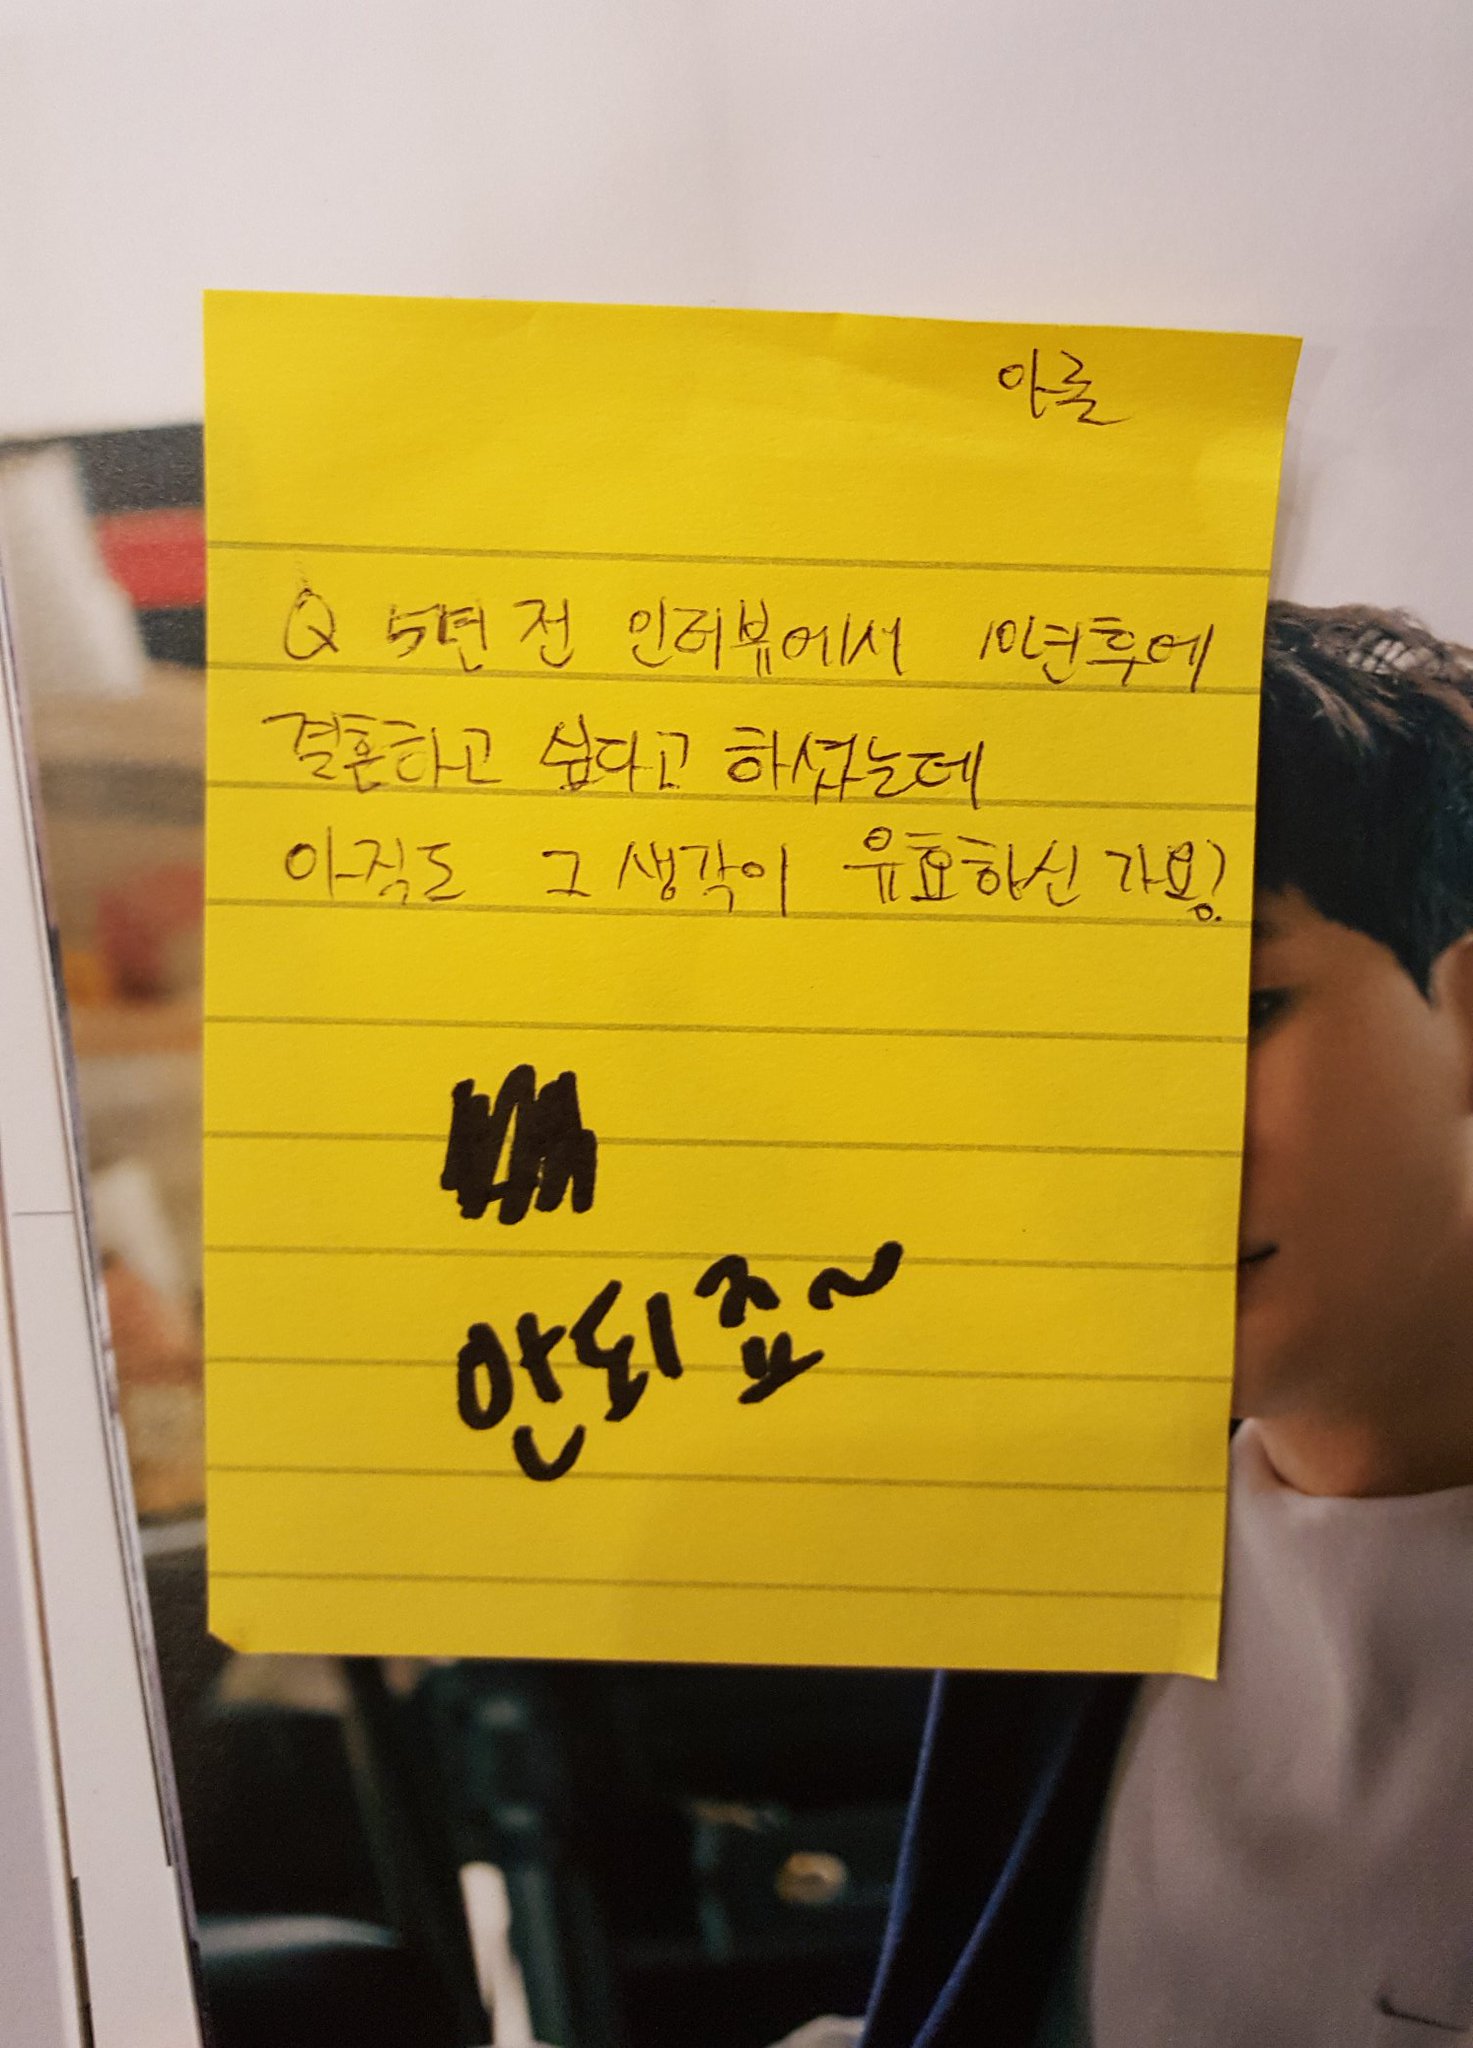 아론
Q 5년 전 인터뷰에서 10년후에
결혼하고 싶다고 하셨는데
아직도 그 생각이 유효하신가용?
안되죠~